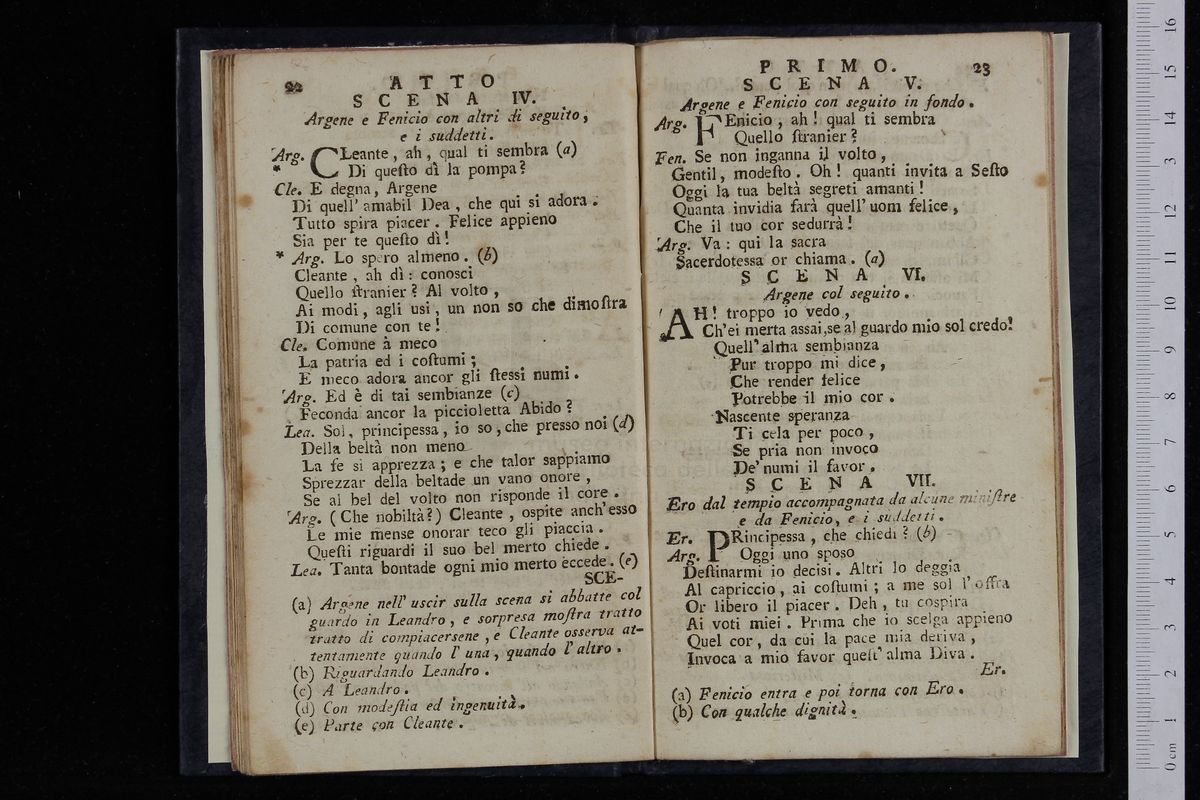 22
ATTO
SCENA IV.
Argene e Fenicio con altri di seguito,
e i suddetti.
Arg. CLeante, ah, qual ti sembra (a)
* Di queſto dì la pompa?
Cle. E degna, Argene
Di quell' amabil Dea, che qui si adora.
Tutto spira piacer. Felice appieno
Sia per te queſto dì!
* Arg. Lo spero almeno. (b)
Cleante, ah dì: conosci
Quello ſtranier? Al volto,
Ai modi, agli usi, un non so che dimoſtra
Di comune con te!
Cle. Comune à meco
La patria ed i coſtumi;
E meco adora ancor gli ſtessi numi.
Arg. Ed è di tai sembianze (c)
Feconda ancor la piccioletta Abido?
Lea. Sol, principessa, io so, che presso noi (d)
Della beltà non meno
La fe si apprezza; e che talor sappiamo
Sprezzar della beltade un vano onore,
Se al bel del volto non risponde il core.
Arg. (Che nobiltà?) Cleante, ospite anch'esso
Le mie mense onorar teco gli piaccia.
Queſti riguardi il suo bel merto chiede.
Lea. Tanta bontade ogni mio merto eccede. (e)
SCE-
(a) Argene nell' uscir sulla scena si abbatte col
guardo in Leandro, e sorpresa moſtra tratto
tratto di compiacersene, e Cleante osserva at-
tentamente quando l' una, quando l' altro.
(b) Riguardando Leandro.
(c) A Leandro.
(d) Con modeſtia ed ingenuità.
(e) Parte con Cleante.
PRIMO. 23
SCENA V.
Argene e Fenicio con seguito in fondo.
Arg. FEnicio, ah! qual ti sembra
Quello ſtranier?
Fen. Se non inganna il volto,
Gentil, modeſto. Oh! quanti invita a Seſto
Oggi la tua beltà segreti amanti!
Quanta invidia farà quell' uom felice,
Che il tuo cor sedurrà!
Arg. Va: qui la sacra
Sacerdotessa or chiama. (a)
SCENA VI.
Argene col seguito.
AH! troppo io vedo,
Ch'ei merta assai, se al guardo mio sol credo!
Quell' alma sembianza
Pur troppo mi dice,
Che render felice
Potrebbe il mio cor.
Nascente speranza
Ti cela per poco,
Se pria non invoco
De' numi il favor.
SCENA VII.
Ero dal tempio accompagnata da alcune miniſtre
e da Fenicio, e i suddetti.
Er. PRincipessa, che chiedi? (b)
Arg. Oggi uno sposo
Deſtinarmi io decisi. Altri lo deggia
Al capriccio, ai coſtumi; a me sol l' offra
Or libero il piacer. Deh, tu cospira
Ai voti miei. Prima che io scelga appieno
Quel cor, da cui la pace mia deriva,
Invoca a mio favor queſt' alma Diva.
Er.
(a) Fenicio entra e poi torna con Ero.
(b) Con qualche dignità.
0 cm 1 2 3 4 5 6 7 8 9 10 11 12 3 14 15 16